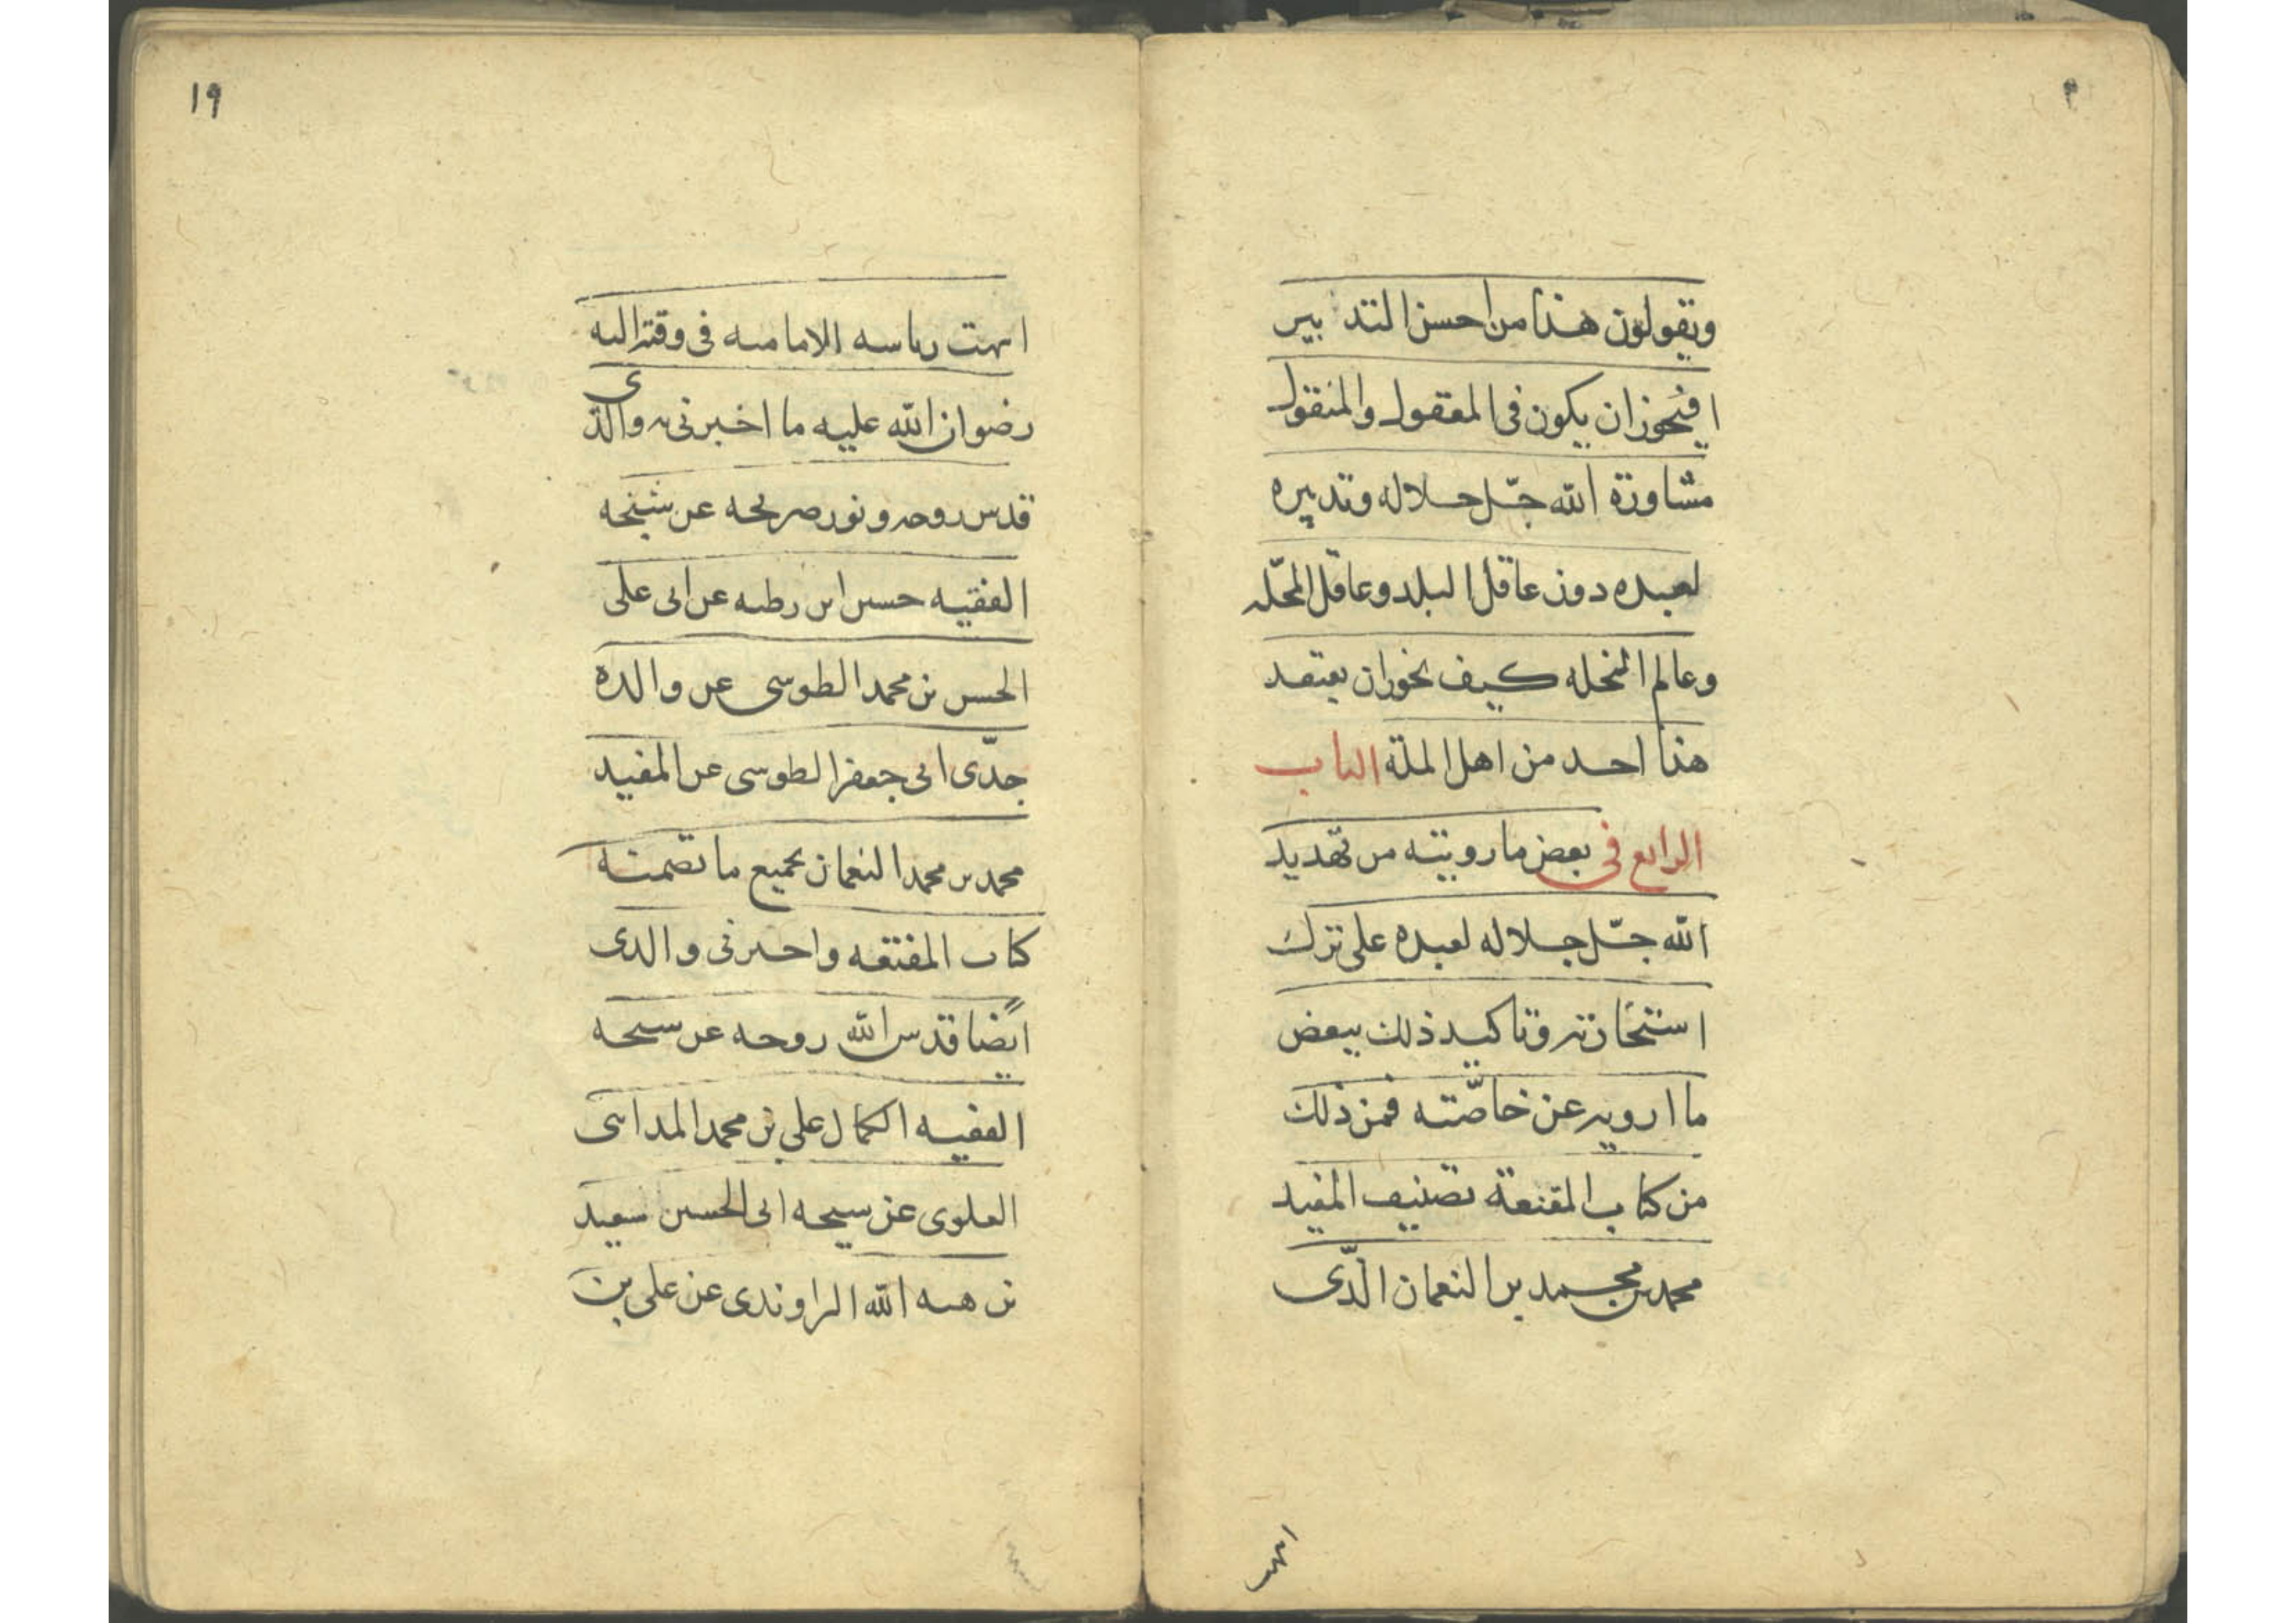 ويقولون هذا من احسن التدبير
افيجوز ان يكون في المعقول والمنقول
مشاورة الله جلّ جلاله وتدبيره
لعبده دون عاقل البلد وعاقل المحلّه
وعالم النحله كيف يجوز ان يعتقد
هذا احد من اهل الملة الباب
الرابع في بعض ما رويته من تهديد
الله جلّ جلاله لعبده على ترك
استخارته وتاكيد ذلك ببعض
ما ارويه عن خاصّته فمن ذلك
من كتاب المقنعة تصنيف المفيد
محمد بن محمد بن النعمان الذّي
انتهت
١٩
انتهت رياسه الاماميه في وقته اليه
رضوان الله عليه ما اخبرني به والدي
قدس روحه ونور ضريحه عن شيخه
الفقيه حسين ابن رطبه عن ابى على
الحسن بن محمد الطوسى عن والده
جدّى ابى جعفر الطوسى عن المفيد
محمد بن محمد النعمان بجميع ما تضمنته
كتاب المقنعه واخبرنى والدى
ايضًا قدس الله روحه عن شيخه
الفقيه الكمال على بن محمد المدائنى
العلوى عن شيخه ابى الحسين سعيد
بن هبه الله الراوندى عن على بن